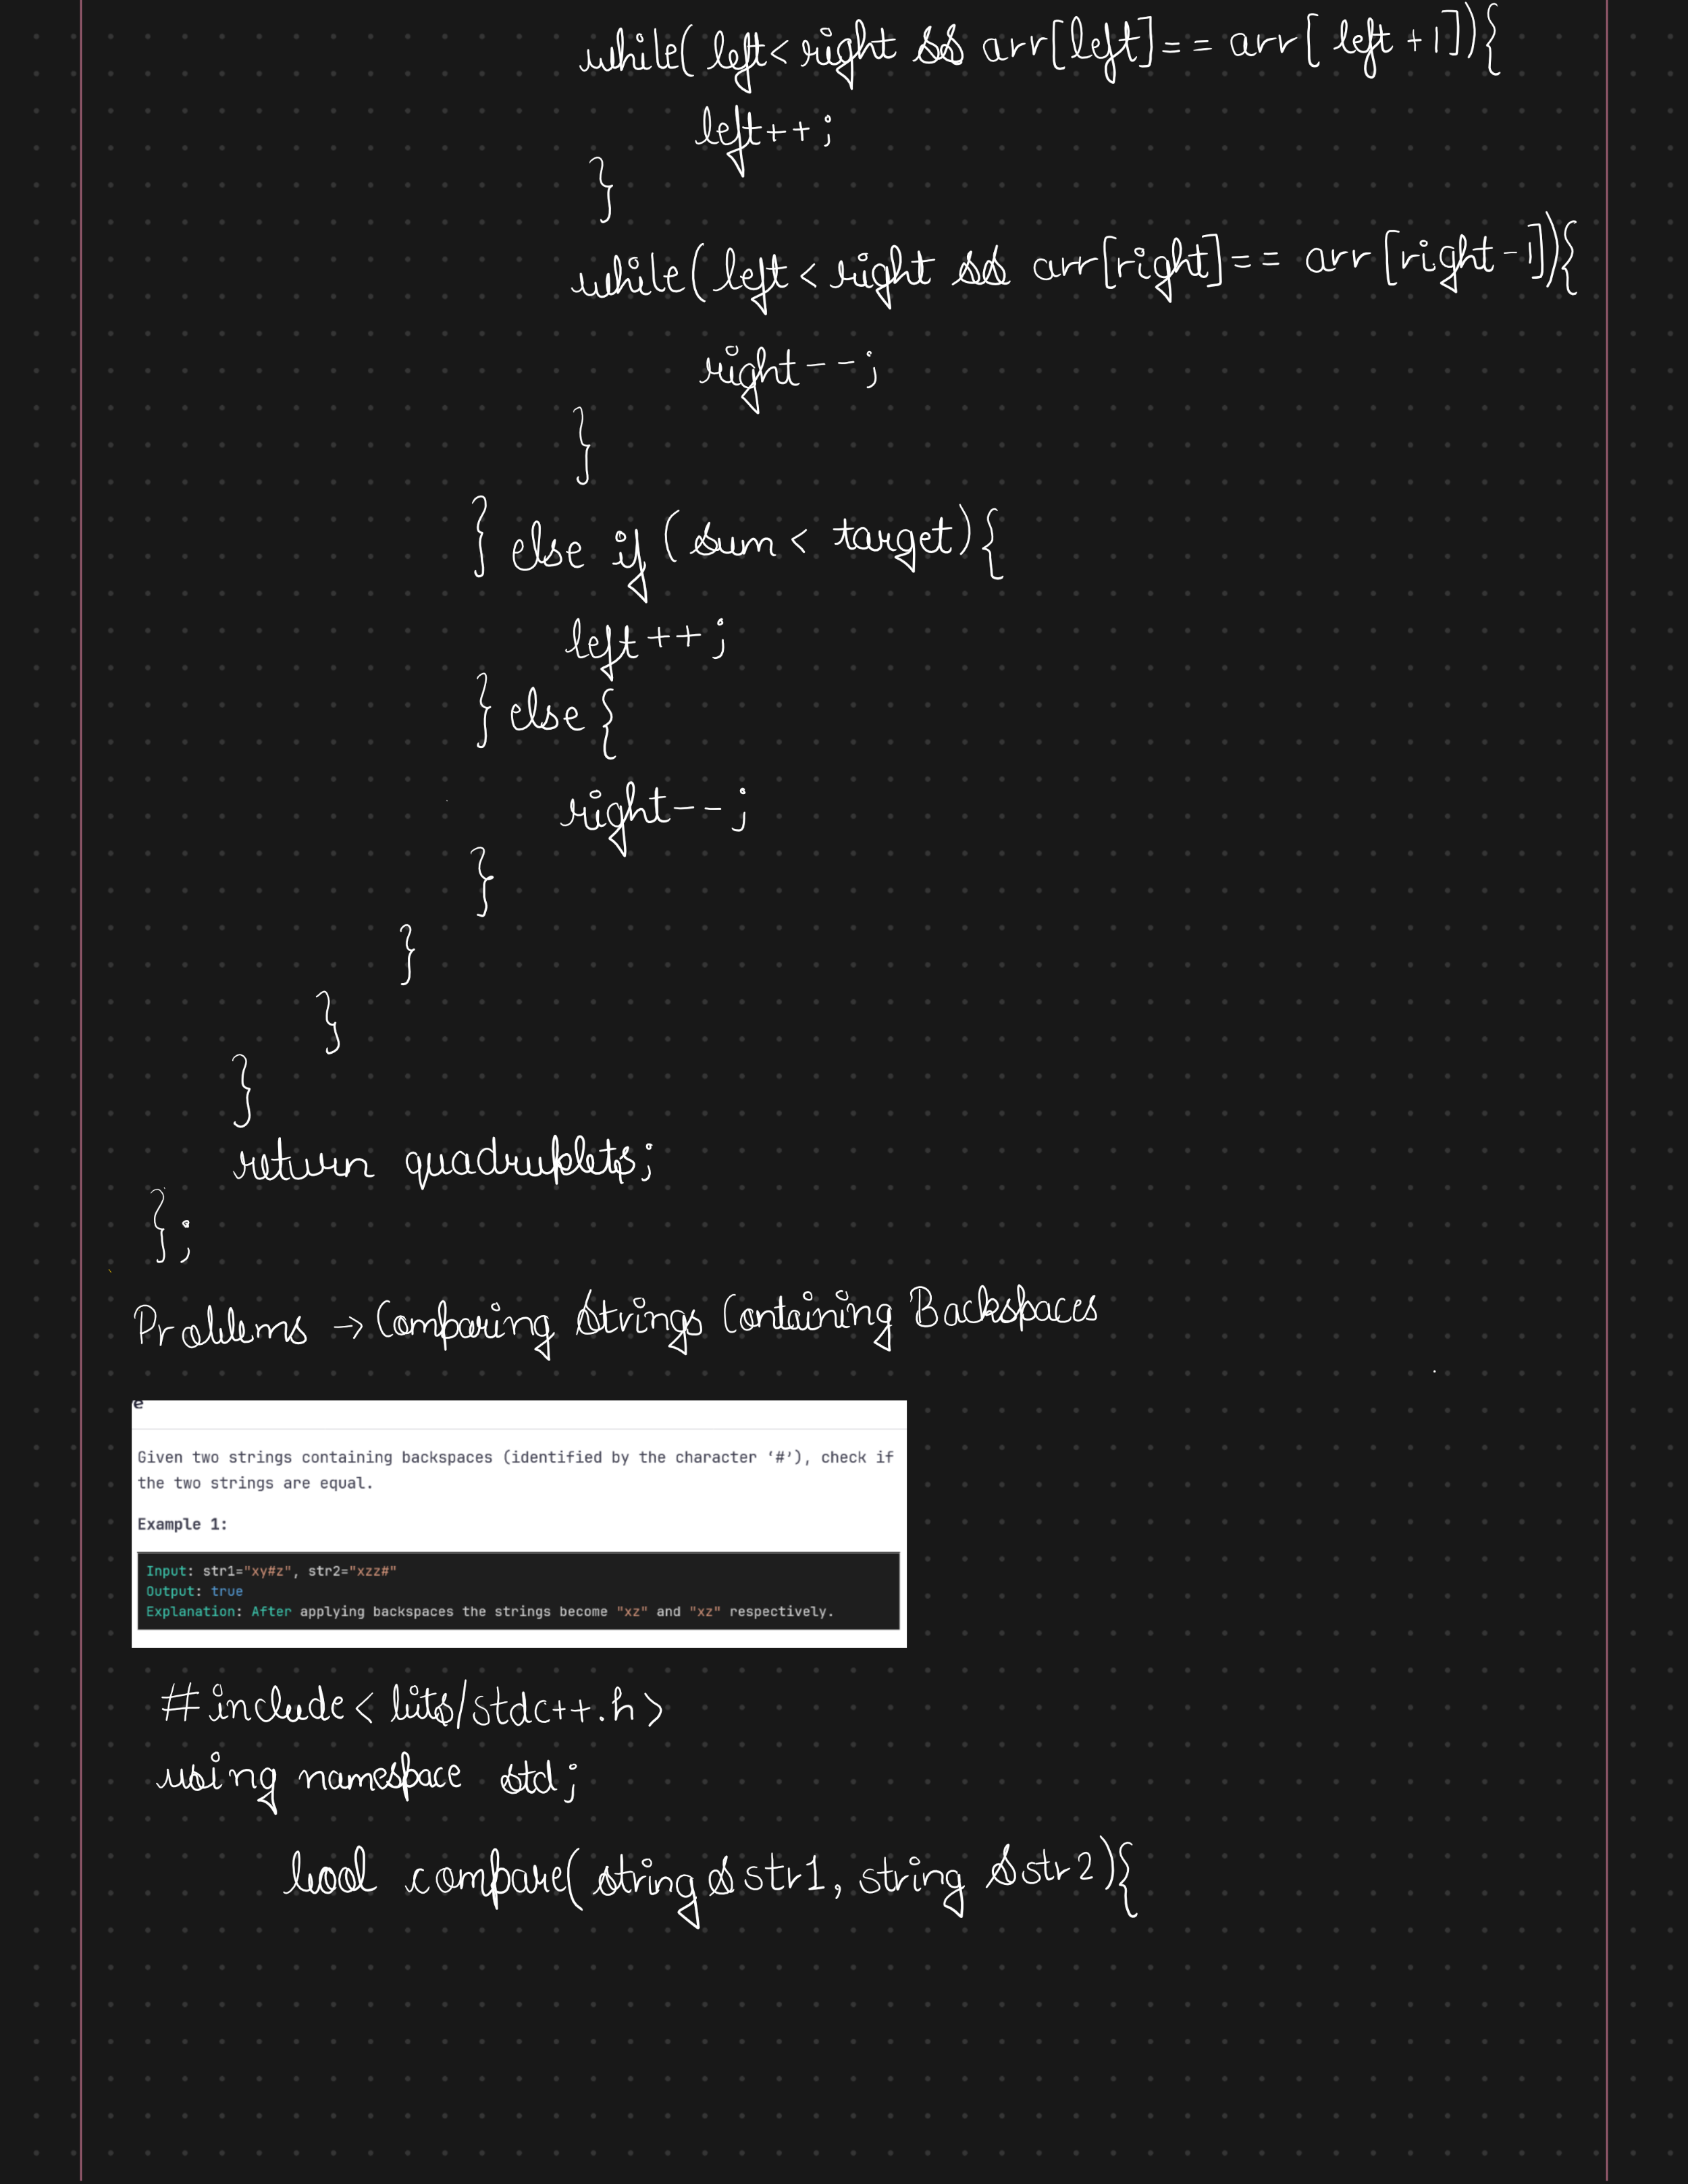 while( left < right && arr[left] == arr[ left +1]){
left++;
}
while( left < right && arr[right] == arr [right-1]){
right--;
}
} else if (sum < target){
left ++;
} else {
right--;
}
}
}
}
return quadruplets;
};
Problems → Comparing Strings Containing Backspaces
e
Given two strings containing backspaces (identified by the character ‘#’), check if
the two strings are equal.
Example 1:
Input: str1="xy#z", str2="xzz#"
Output: true
Explanation: After applying backspaces the strings become "xz" and "xz" respectively.
#include < bits/stdc++.h >
using namespace std;
bool compare( string & str1, string & str2){